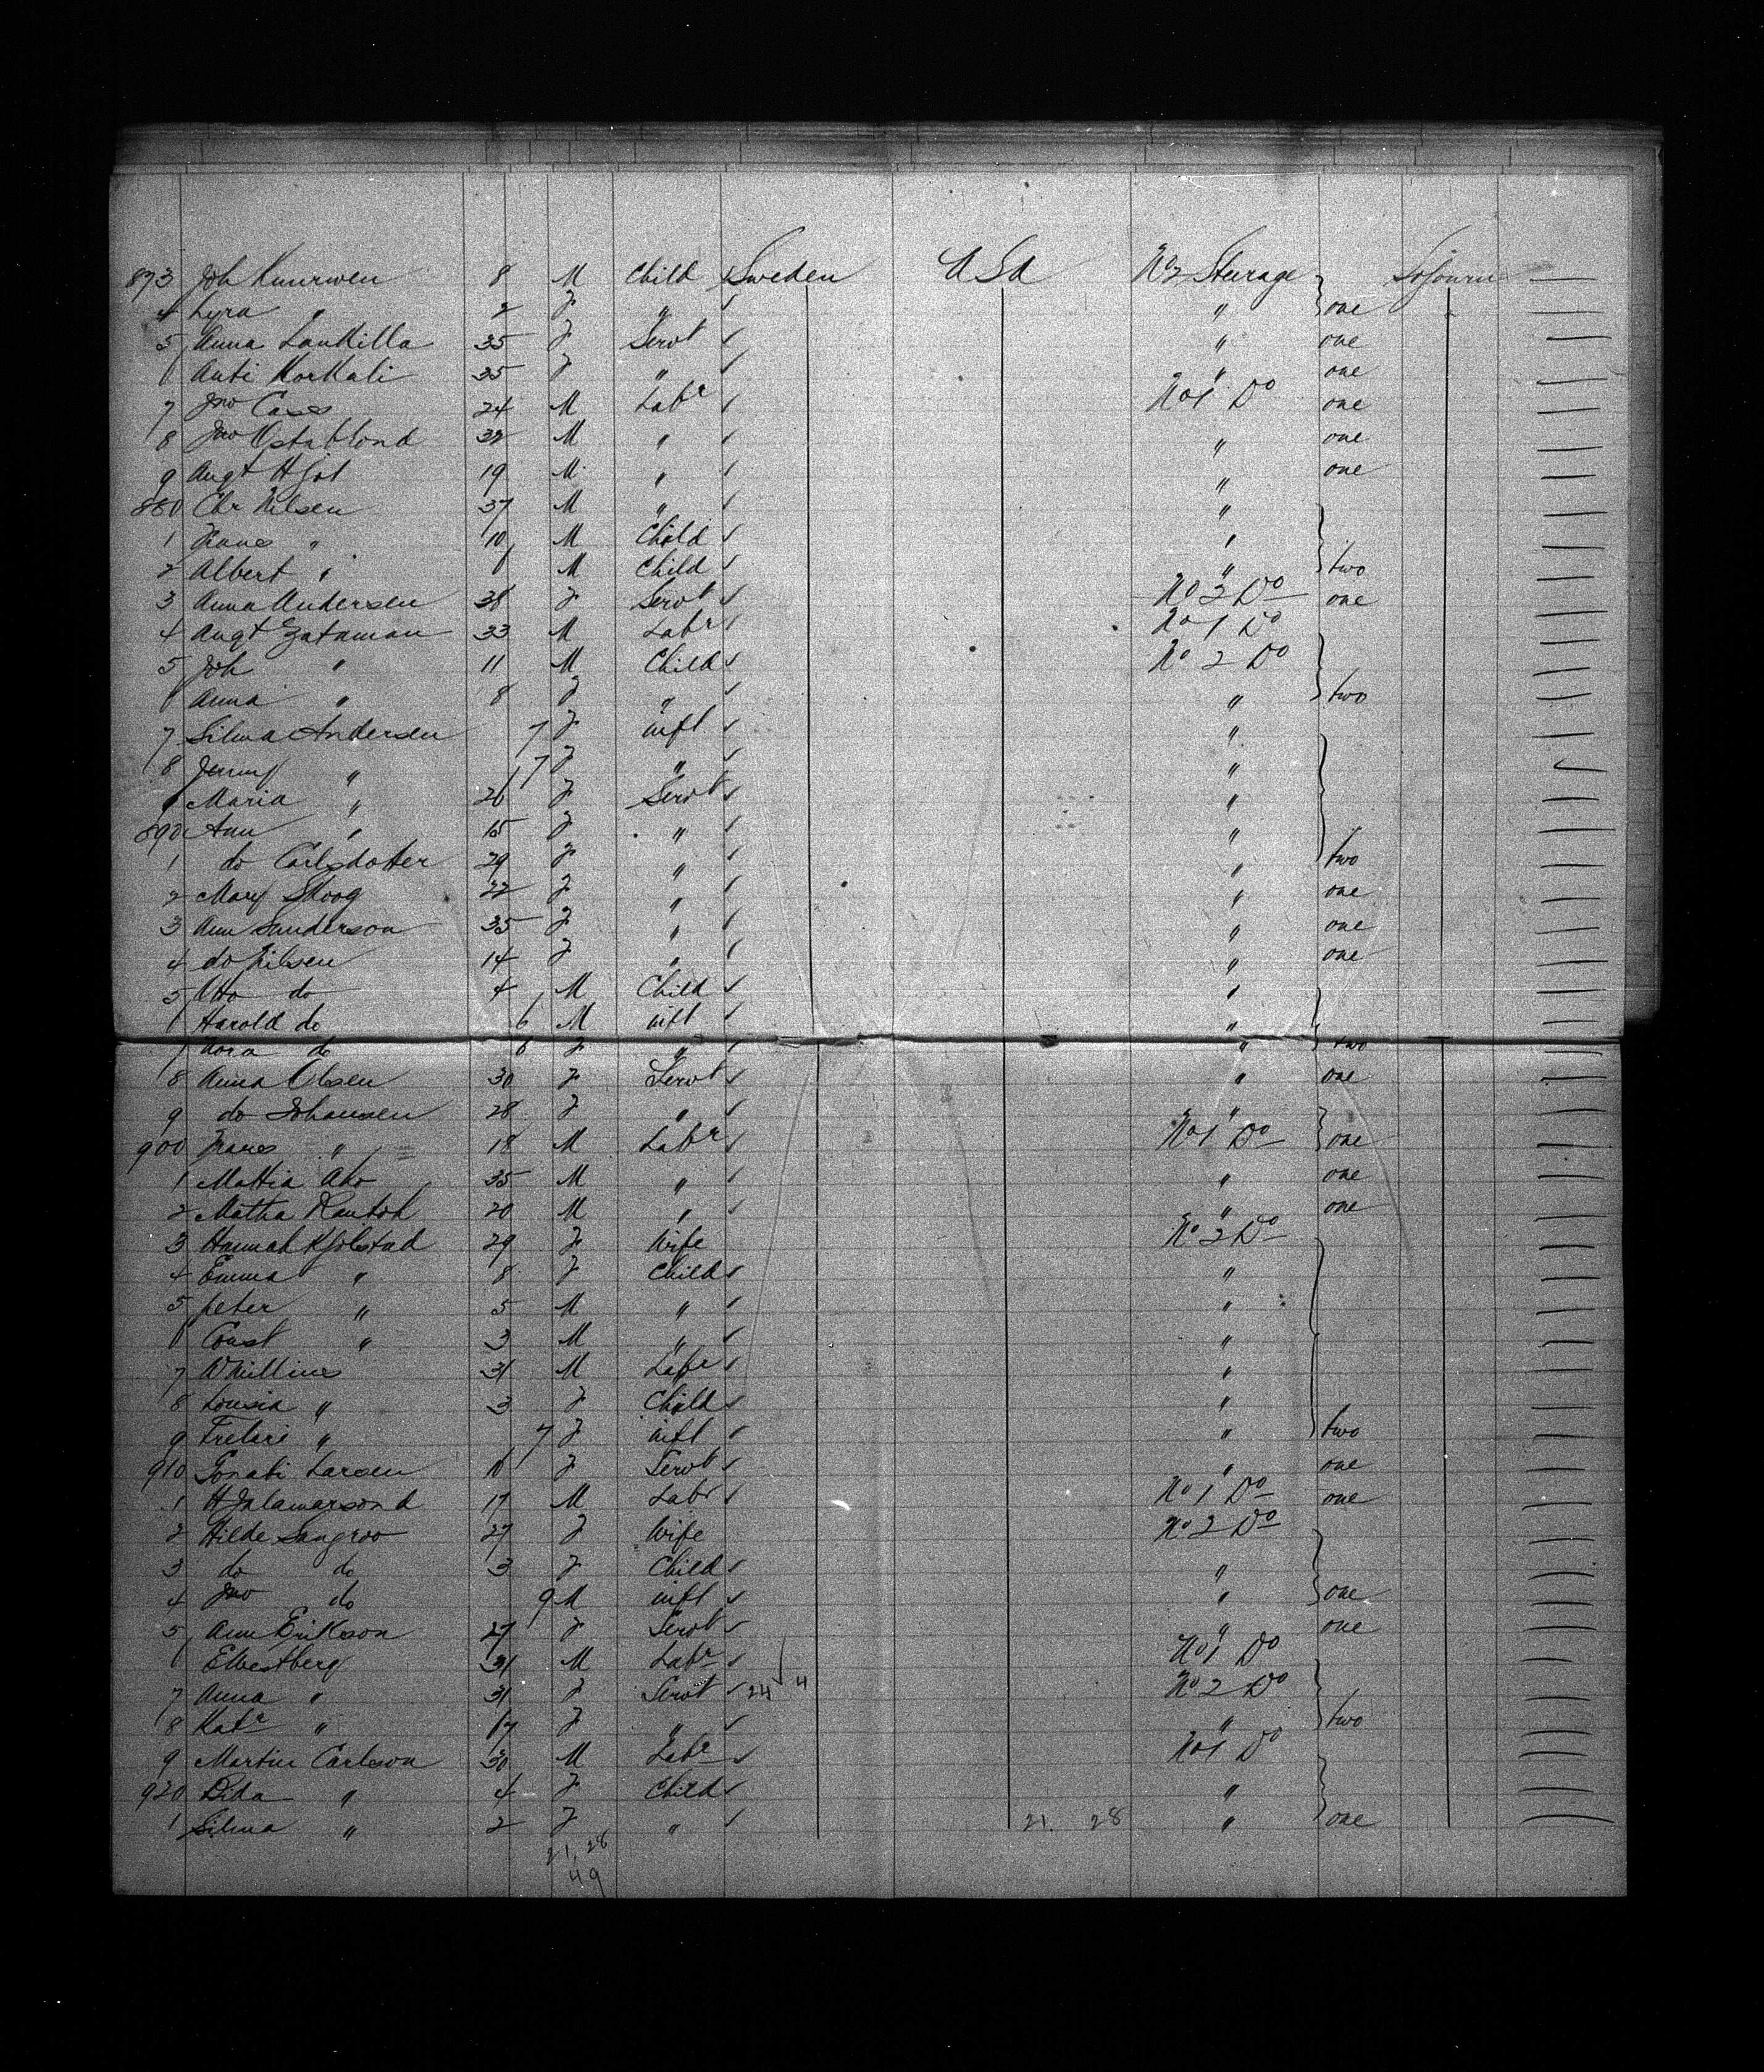 873 Joh Kuurwen 8 M Child Sweden USA No 2 Steurage Sojourn
4 Lyra " 2 F " " one
5 Anna Lankilla 35 F Servt " one
6 Anti Korkali 35 F " " one
7 Jno Cass 24 M Labr No 1 Do one
8 Jno Ostablond 32 M " " one
9 Augt Hjol 19 M " " one
880 Chr Nilsen 37 M " "
1 Frans " 10 M Child "
2 Albert " 6 M Child " two
3 Anna Andersen 38 F Servt No 2 Do one
4 Augt Zataman 33 M Labr No 1 Do
5 Joh " 11 M Child No 2 Do
6 Anna " 8 F " " two
7 Silma Andersen 7 F inft "
8 Jenny " 7 F " "
9 Maria " 26 F Servt "
890 Ann " 15 F " "
1 do Carlsdotter 29 F " " two
2 Mary Skoog 22 F " " one
3 Ann Sanderson 35 F " " one
4 do Nilsen 14 F " " one
5 Otto do 4 M Child "
6 Harold do 6 M inft "
7 Nora do 6 F " " two
8 Anna Olsen 30 F Servt " one
9 do Johansen 28 F " "
900 Frans " 18 M Labr No 1 Do one
1 Mattia Aho 35 M " " one
2 Matha Rautoh 20 M " " one
3 Hannah Kjolstad 29 F Wife No 2 Do
4 Emma " 8 F Child "
5 peter " 5 M " "
6 Const " 3 M " "
7 W Millines 31 M Labr "
8 Lousia " 3 F Child "
9 Frelari " 7 F inft " two
910 Gonabi Larsen 16 F Servt " one
1 H Jalamarson d 17 M Labr No 1 Do one
2 Hilde Sangroo 27 F Wife No 2 Do
3 do do 3 F Child "
4 Jno do 9 M inft " one
5 Ann Erikson 27 F Servt " one
6 E Westberg 31 M Labr No 1 Do
7 Anna " 31 F Servt 24 4 No 2 Do
8 Katr " 17 F " " two
9 Martin Carlson 30 M Labr No 1 Do
920 Dida " 4 F Child "
1 Silma " 2 F " 21. 28 " one
21, 28
49